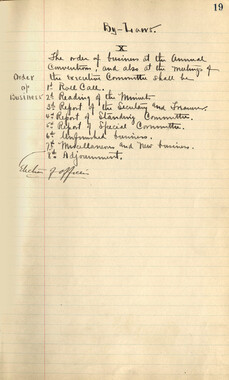 19
By-Laws.
X
The order of business at the Annual
Convention, and also at the meetings of
the Executive Committee shall be
Order
of
Business
1st Roll Call.
2d Reading of the Minutes
3d Report of the Secretary and Treasurer.
4th Report of Standing Committee.
5th Report of Special Committee.
6th Unfinished business.
7th Miscellaneous and New business.
8th Adjournment.
Election of officers